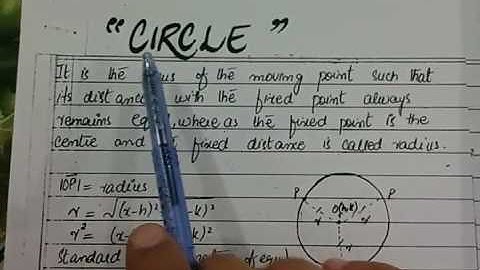 "CIRCLE"
It is the us of the moving point such that
its distance with the fixed point always
remains where as the fixed point is the
centre and fixed distance is called radius.
|OP| = radius
r = √(x-h)² -k)²
r² = (x- -k)²
Standard of equ
P O(h,k) P
r r
r